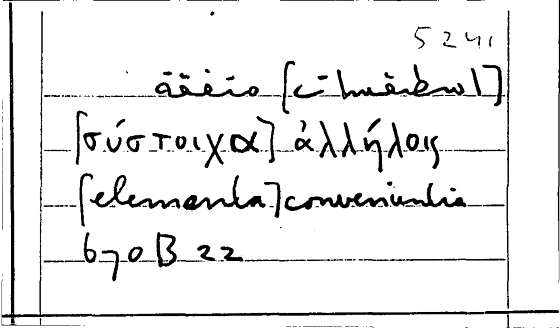 5241
[σύστοιχα] ἀλλήλοις
[elementa] convenientia
670 B 22